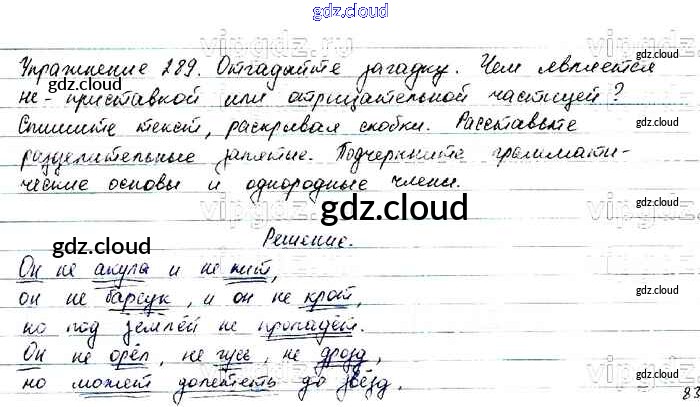 gdz.cloud
Упражнение 289. Отгадайте загадку. Чем является
не - приставкой или отрицательной частицей?
Спишите текст, раскрывая скобки. Расставьте
разделительные запятые. Подчеркните граммати-
ческие основы и однородные члены.
gdz.cloud
Решение.
Он не акула и не кит,
он не барсук, и он не крот,
но под землёй не пропадёт.
Он не орёл, не гусь, не дрозд,
но может долететь до звёзд.
83